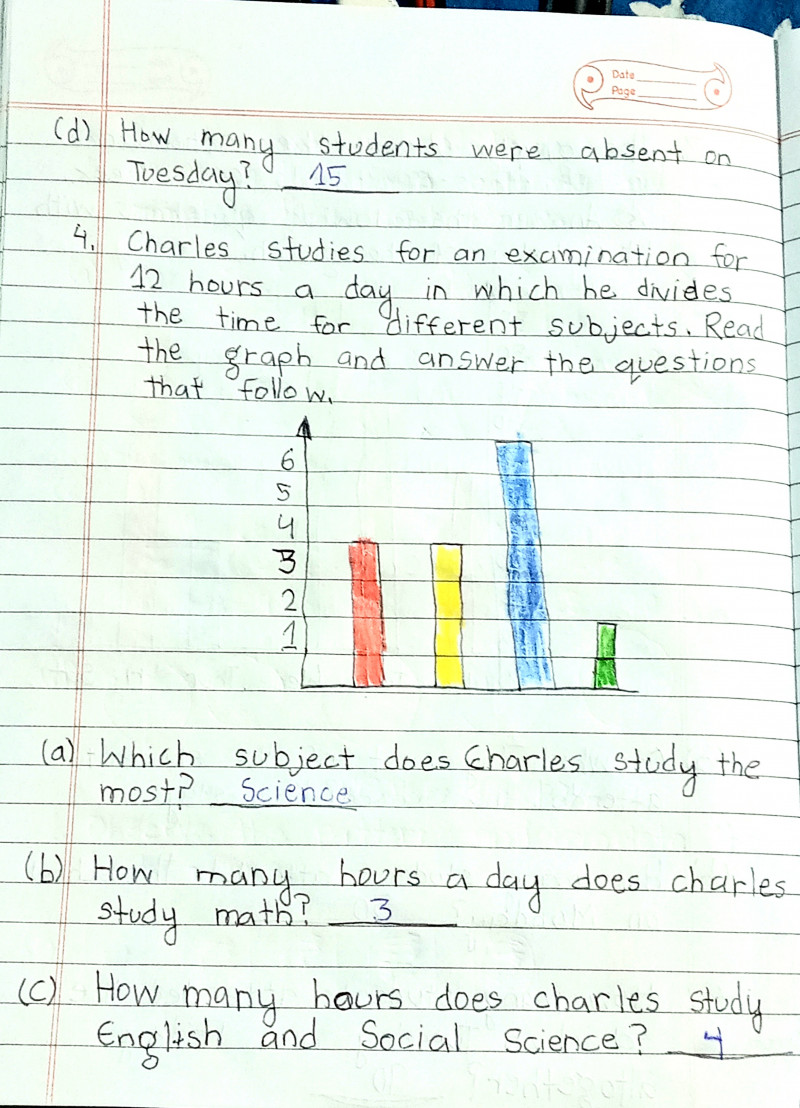 Date
Page
(d) How many students were absent on
Tuesday? 15
4. Charles studies for an examination for
12 hours a day in which he divides
the time for different subjects. Read
the graph and answer the questions
that follow.
6
5
4
3
2
1
(a) Which subject does Charles study the
most? Science
(b) How many hours a day does charles
study math? 3
(c) How many hours does charles study
English and Social Science? 4